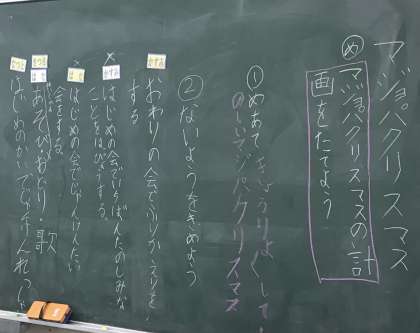 マジョパクリスマス
め
マジョパクリスマスの計
画をたてよう
①めあて きょうりょくして
のしいマジョパクリスマス
②ないようをきめよう
かすみ
おわりの会でふりかえりを
する
かすみ
はじめの会でいちばんたのしみな
ことをはっぴょうする
はじめの会でじゃんけんたい
会をする
あそび・おどり・歌
はじめのかいで